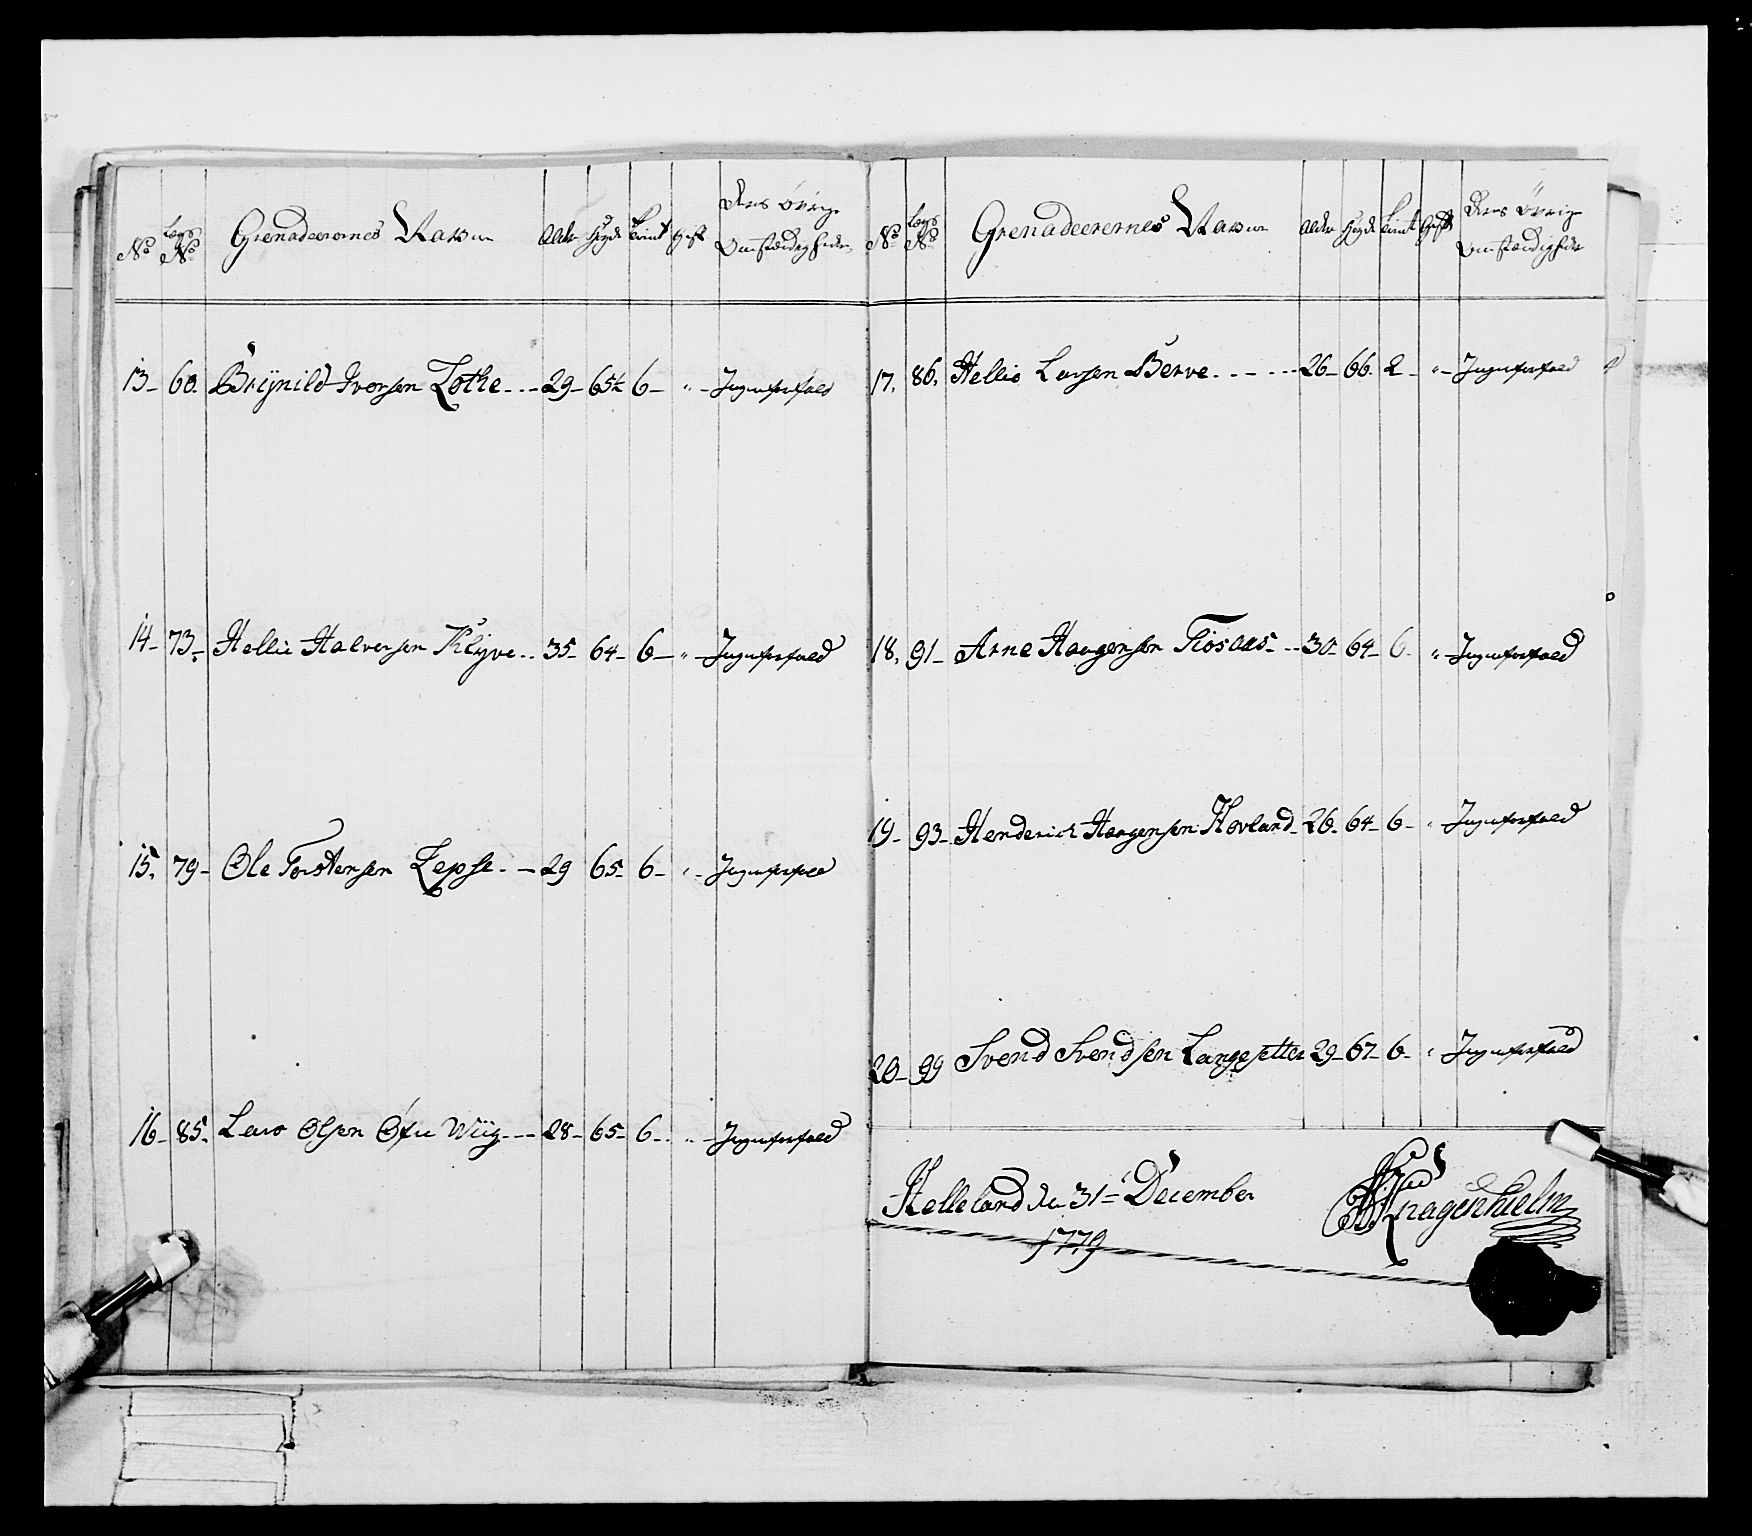 No Lægs No Grenadeerernes Navne Alder Høyde Tient Gift Deres øvrige Omstændigheder
13- 60. Brÿnild Iversen Lothe - - - 29- 65½ 6- " - Ingenforfald
14- 73- Hellie Halvorsen Klÿve - - 35- 64- 6- " - Ingenforfald
15. 79- Ole Torstensen Lepse - - 29 65- 6- " - Ingenforfald
16- 85. Lars Olsen Øfre Wiig - - - 28- 65- 6- " - Ingenforfald
No Lægs No Grenadeerernes Navne Alder Høyde Tient Gift Deres Øvrige Omstændigheder
17. 86. Hellie Larsen Berve - - - - 26- 66. 2- " - Ingenforfald
18. 91- Arne Haagensen Tiosaas - - - 30- 64- 6- " - Ingenforfald
19- 93- Henderich Haagensen Hovland- 26- 64- 6- " Ingenforfald
20- 99 Svend Svendsen Langesetter 29- 67- 6- " Ingenforfald
Helleland den 31= December
1779
Knagenhielm